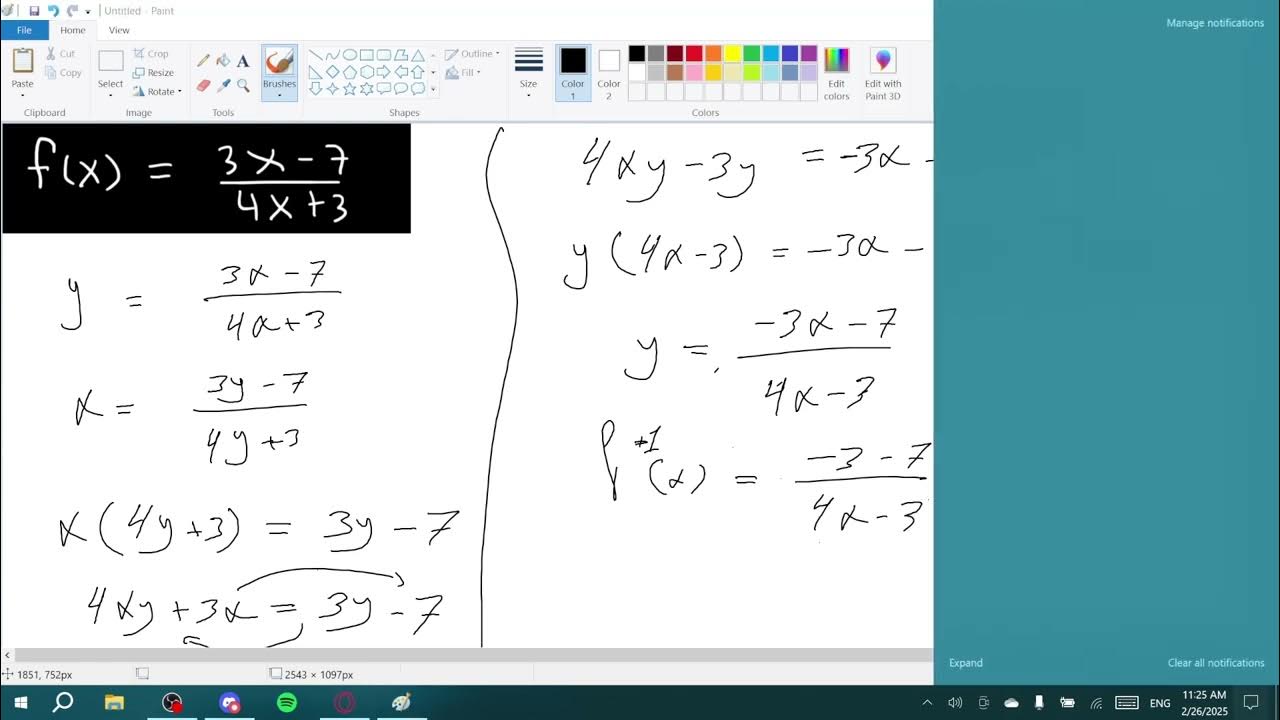 Untitled - Paint
File Home View
Paste Cut Copy Clipboard
Select Crop Resize Rotate Image
Tools
Brushes
Outline Fill Shapes
Size
Color 1
Color 2
Edit colors
Colors
Edit with Paint 3D
Manage notifications
f(x) = \frac{3x-7}{4x+3}
y = \frac{3x-7}{4x+3}
x = \frac{3y-7}{4y+3}
x(4y+3) = 3y-7
4xy+3x = 3y-7
4xy-3y = -3x-
y(4x-3) = -3x-
y = \frac{-3x-7}{4x-3}
f^{-1}(x) = \frac{-3-7}{4x-3}
Expand Clear all notifications
1851, 752px
2543 × 1097px
ENG
11:25 AM
2/26/2025